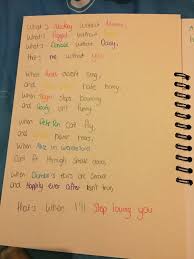 What's Mickey without Minnie,
What's Piglet without
What's Donald without Daisy,
that's me without you
When Ariel doesn't sing,
and hate honey,
When Tigger stops bouncing
and Goofy isn't funny,
When Peter Pan can't fly,
and never
When Alice in wonderland
Can't fit through small doors
When Dumbo's ears are small
and Happily ever after isn't true,
that's when I'll Stop loving you